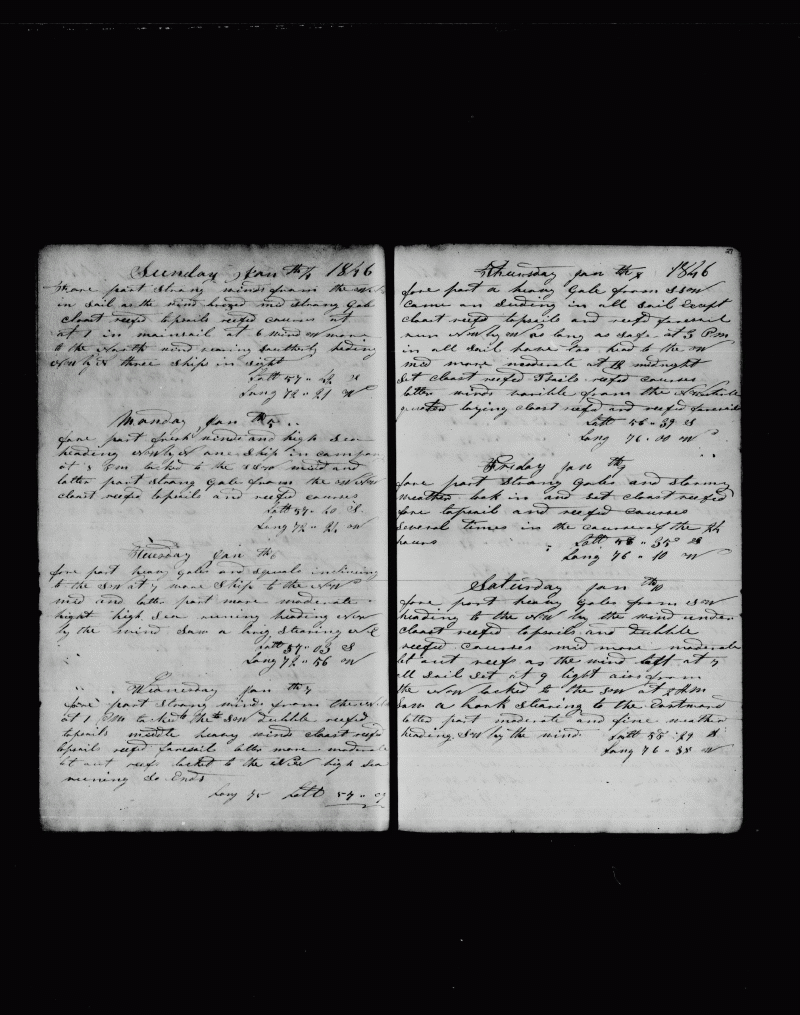 Sunday Jan th 4 1846
fore part Strong winds from the
in sail as the wind hered mid Strong Gale
Closst reefed topsails reefed courses at
at 1 in mainsail at 6 wind W more
to the North wind vearing Southerly heding
NW by N three Ships in sight
Latt 57 " 42 S
Long 72 " 21 W
Monday Jan th 5
fore part fresh winds and high Sea
heading NW by N one Ship in compan
at 8 Pm tacked to the SSW midd and
latter part Strong Gale from the W NW
Closst reefed topsails and reefed courses
Latt 57 " 40 S
Long 72 " 24 W
Teusday Jan th 6
fore part heavy Gales and Squals inclineing
to the SW at 7 more Ships to the NW
mid and latter part more moderate
hight high Sea runing heading NW
by the wind Saw a brig Stearing N E
Latt 57 " 03 S
Long 72 " 56 W
Wednesday Jan th 7
fore part Strong winds from the
at 1 Pm tacked to the SW Dubble reefed
topsails middle heavy wind closst reefd
topsails reefd foresail latter more moderate
let out reefs tacket to the high Sea
runing So Ends
Long 75 Latt 57 " 09
27
Thursday Jan th 8 1846
fore part a heavy Gale from SSW
came on Sending in all Sail Exept
Closst reefd topsails and reefd foresail
run NW by W as long as Safe at 3 Pm
in all Sail have too head to the W
mid more moderate at 12 midnight
Set Closst reefed Stails reefed courses
latter winds varible from the
quarter laying closst reefd and reefed foresail
Latt 56 " 39 S
Long 76 " 00 W
Friday Jan th 9
fore part Strong Gales and Stormy
Weather took in and Set Closst reefed
fore topsails and reefed courses
Several times in the course of the 24
hours
Latt 55 " 35 S
Long 76 " 10 W
Saturday Jan th 10
fore part heavy Gales from SW
heading to the NW by the wind under
Closst reefed topsails and Dubble
reefed Courses mid more moderate
let out reefs as the wind left at 7
all Sail Set at 9 light airs from
the NW tacked to the SW at 2 Am
Saw a bark Stearing to the Eastward
latter part moderate and fine weather
heading SW by the wind Latt 55 " 29 S
Long 76 " 38 W